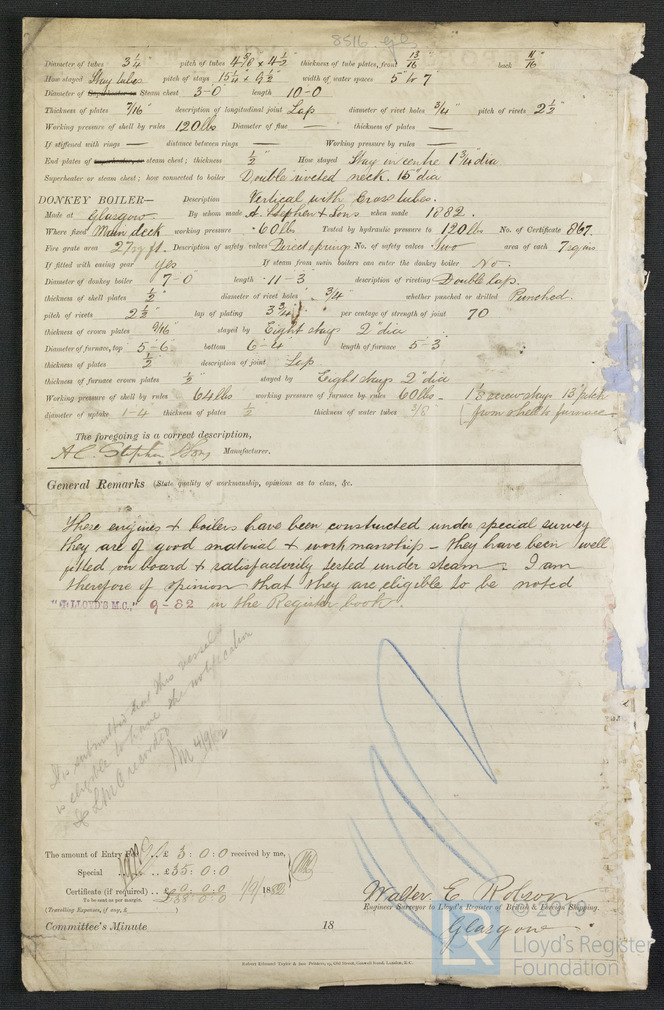 8516 gls
Diameter of tubes 3 1/4" pitch of tubes 4 3/8 x 4 1/2 thickness of tube plates, front 13/16 back 11/16"
How stayed Stay tubes pitch of stays 15 1/4 x 9 1/2" width of water spaces 5" to 7"
Diameter of Superheater or Steam chest 3-0 length 10-0
Thickness of plates 7/16" description of longitudinal joint Lap diameter of rivet holes 3/4" pitch of rivets 2 1/2"
Working pressure of shell by rules 120lbs Diameter of flue — thickness of plates —
If stiffened with rings — distance between rings — Working pressure by rules —
End plates of Superheater, or steam chest; thickness 1/2" How stayed Stay in centre 1 3/4" dia
Superheater or steam chest; how connected to boiler Double riveted neck. 15" dia
DONKEY BOILER— Description Vertical with Cross tubes.
Made at Glasgow By whom made A. Stephen & Sons when made 1882.
Where fixed Main deck working pressure 60lbs Tested by hydraulic pressure to 120lbs No. of Certificate 867.
Fire grate area 27 sq ft. Description of safety valves Direct springs No. of safety valves Two area of each 7 sq ins
If fitted with easing gear yes If steam from main boilers can enter the donkey boiler No.
Diameter of donkey boiler 7-0 length 11-3 description of riveting Double lap.
thickness of shell plates 1/2" diameter of rivet holes 3/4" whether punched or drilled Punched.
pitch of rivets 2 1/2" lap of plating 3 3/4" per centage of strength of joint 70
thickness of crown plates 9/16" stayed by Eight stays 2" dia
Diameter of furnace, top 5-6 bottom 6-4 length of furnace 5-3
thickness of plates 1/2" description of joint Lap
thickness of furnace crown plates 1/2" stayed by Eight stays 2" dia
Working pressure of shell by rules 64lbs working pressure of furnace by rules 60lbs - 1 1/8 screw stays 13" pitch
diameter of uptake 1-4 thickness of plates 1/2 thickness of water tubes 3/8 from shell to furnace
The foregoing is a correct description,
A C. Stephen & Sons Manufacturer.
General Remarks (State quality of workmanship, opinions as to class, &c.
These engines & boilers have been constructed under special survey
they are of good material & workmanship - they have been well
fitted on board & satisfactorily tested under steam. I am
therefore of opinion that they are eligible to be noted
"LLOYD'S M.C." 9-82 in the Register book.
It is submitted that this vessel
is eligible to have the notification
of LMC recorded
4/9/82
The amount of Entry Fee .. £ 3 : 0 : 0 received by me,
Special .. .. £35 : 0 : 0
Certificate (if required) .. £0 : 0 : 0 1/9/1882
To be sent as per margin. £38 : 0 : 0
(Travelling Expenses, if any, £ )
Committee's Minute 18
Walter E. Robson
Engineer Surveyor to Lloyd's Register of British & Foreign Shipping.
Glasgow
© 2019
LR
Lloyd's Register
Foundation